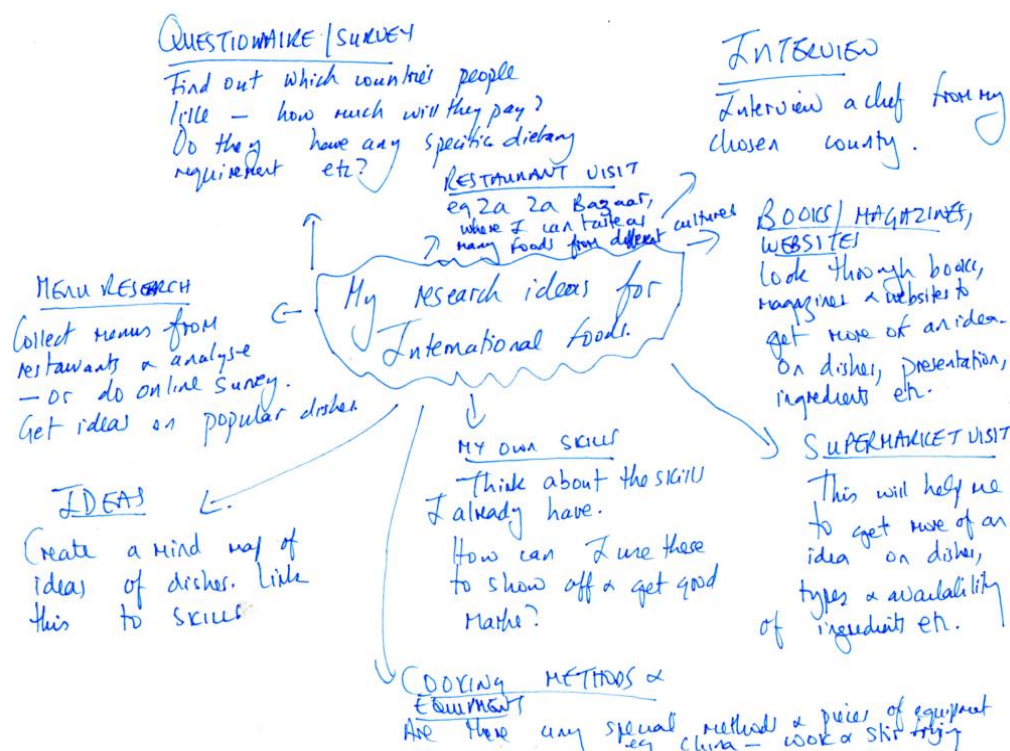 QUESTIONAIRE/SURVEY
Find out which countries people
like – how much will they pay?
Do they have any specific dietary
requirement etc?
INTERVIEW
Interview a chef from my
chosen county.
RESTAURANT VISIT
eg Za Za Bazaar,
where I can taste as
many foods from different cultures
BOOKS/MAGAZINES,
WEBSITES
Look through books,
magazines & websites to
get more of an idea
on dishes, presentation,
ingredients etc.
MENU RESEARCH
Collect menus from
restaurants & analyse
– or do online survey.
Get ideas on popular dishes.
My research ideas for
International foods.
SUPERMARKET VISIT
This will help me
to get more of an
idea on dishes,
types & availability
of ingredients etc.
MY OWN SKILLS
Think about the skills
I already have.
How can I use these
to show off & get good
marks?
IDEAS
Create a mind map of
ideas of dishes. Link
this to SKILLS
COOKING METHODS &
EQUIPMENT
Are there any special methods & pieces of equipment
eg China – wok & stir frying